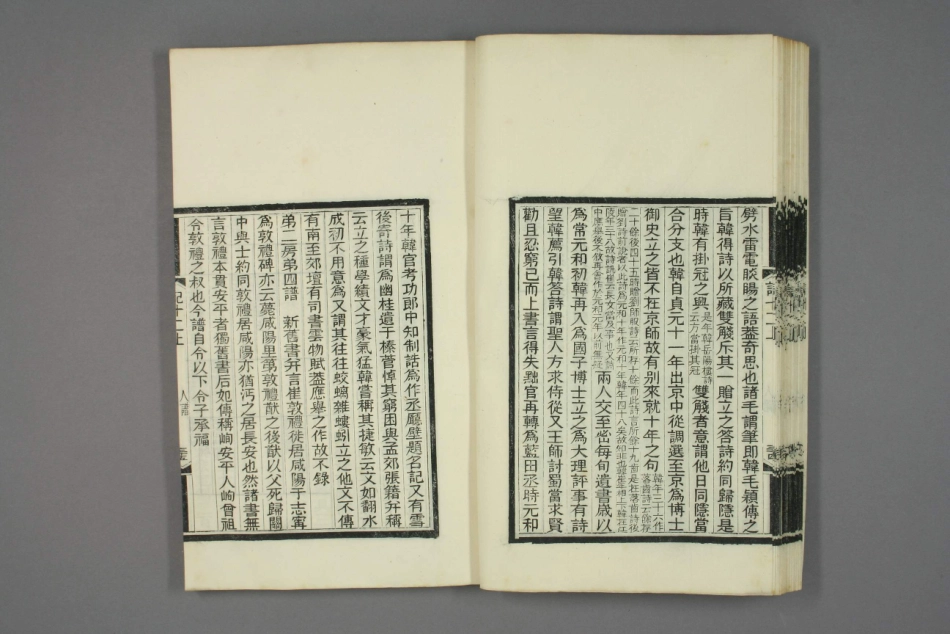 劈水雷電睒暘之語葢奇思也諸毛謂筆即韓毛穎傳之
旨韓得詩以所藏雙鱉斥其一贈立之答詩約同歸隱是
時韓有掛冠之興是年韓岳陽樓詩云方當掛其冠雙鱉者意謂他日同隱當
合分支也韓自貞元十一年出京中從調選至京爲博士
御史立之皆不在京師故有別來就十年之句韓年三十六作落齒詩云餘存
二十餘後四十五時贈劉師服詩云所存十餘
爲常元和初韓再入爲國子博士立之爲大理評事有詩
望韓薦引韓答詩謂聖人方求侍從又王師討蜀當求賢
勸且忍窮已而上書言得失黜官再轉爲藍田丞時元和
十年韓官考功郎中知制誥爲作丞廳壁題名記又有雪
後寄詩謂爲幽桂遺于榛菅悼其窮困與孟郊張籍幷稱
云立之種學績文才豪氣猛韓嘗稱其捷敏云文如翻水
成初不用意爲又謂其往往蛟螭雜螻蚓立之他文不傳
有南至郊壇有司書雲物賦葢應舉之作故不錄
弟二房弟四譜　新舊書幷言崔敦禮徙居咸陽于志寧
爲敦禮碑亦云薨咸陽里弟敦禮猷之後猷以父死歸關
中與士約同敦禮居咸陽亦猶沔之居長安也然諸書無
言敦禮本貫安平者獨舊書后妃傳稱峋安平人峋曾祖
令敦禮之叔也今譜自令以下令子承福